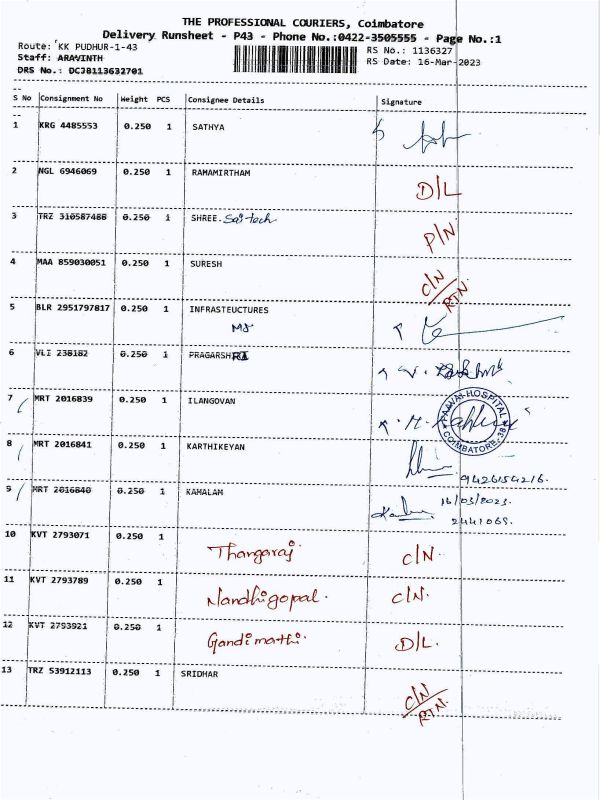 THE PROFESSIONAL COURIERS, Coimbatore
Delivery Runsheet - P43 - Phone No.:0422-3505555 - Page No.:1
Route: KK PUDHUR-1-43 RS No.: 1136327
Staff: ARAVINTH RS Date: 16-Mar-2023
DRS No.: DCJB113632701
S No Consignment No Weight PCS Consignee Details Signature
1 KRG 4485553 0.250 1 SATHYA
2 NGL 6946069 0.250 1 RAMAMIRTHAM D/L
3 TRZ 310587488 0.250 1 SHREE. Sai tech P/N
4 MAA 859030051 0.250 1 SURESH C/N RTN
5 BLR 2951797817 0.250 1 INFRASTEUCTURES
6 VLI 238182 0.250 1 PRAGARSH
7 MRT 2016839 0.250 1 ILANGOVAN HOSPITAL COIMBATORE-38
8 MRT 2016841 0.250 1 KARTHIKEYAN
9426154216.
9 MRT 2016840 0.250 1 KAMALAM 16/03/2023.
2441069.
10 KVT 2793071 0.250 1 Thangaraj C/N.
11 KVT 2793789 0.250 1 Nandhigopal. C/N.
12 KVT 2793921 0.250 1 Gandimathi. D/L.
13 TRZ 53912113 0.250 1 SRIDHAR C/N RTN.